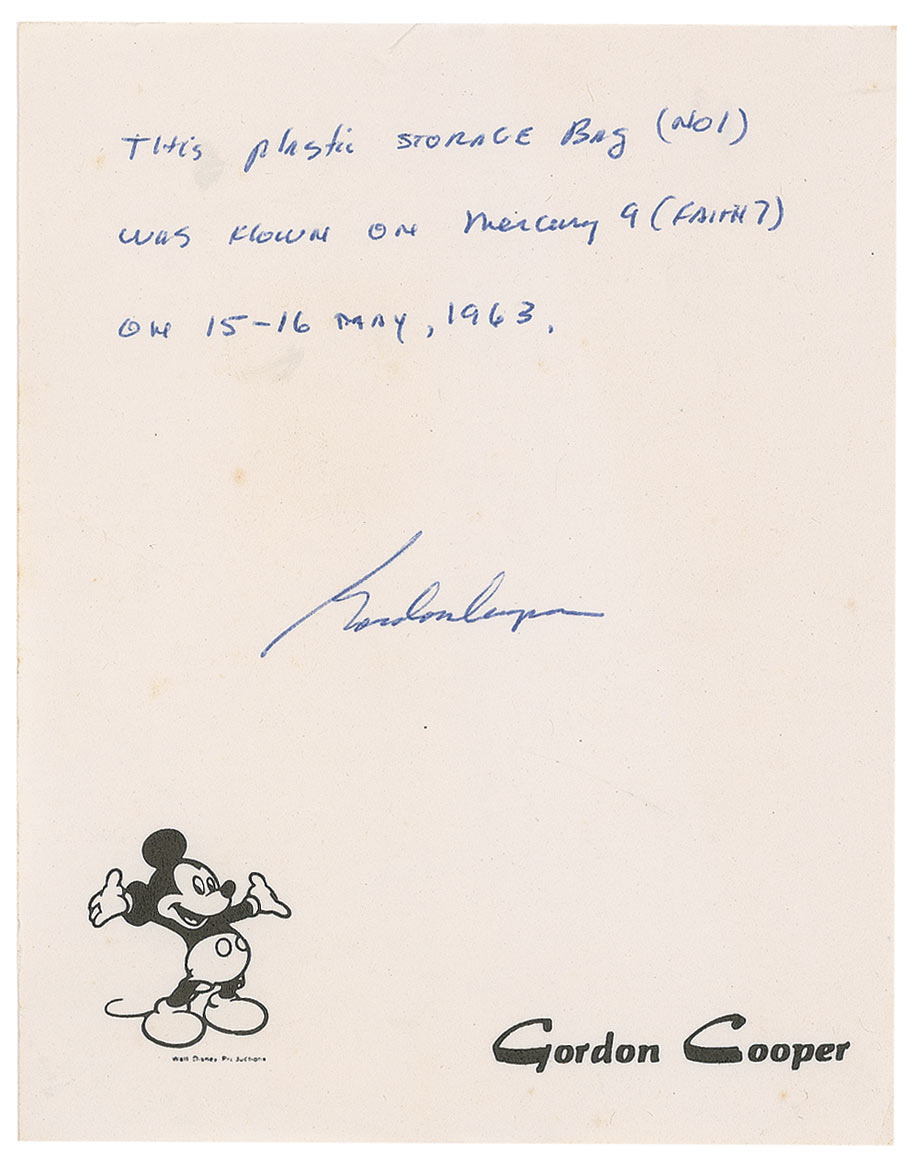 This plastic STORAGE Bag (NO1)
was flown on Mercury 9 (FAITH 7)
ON 15-16 MAY, 1963.
Gordon Cooper
Walt Disney Productions
Gordon Cooper